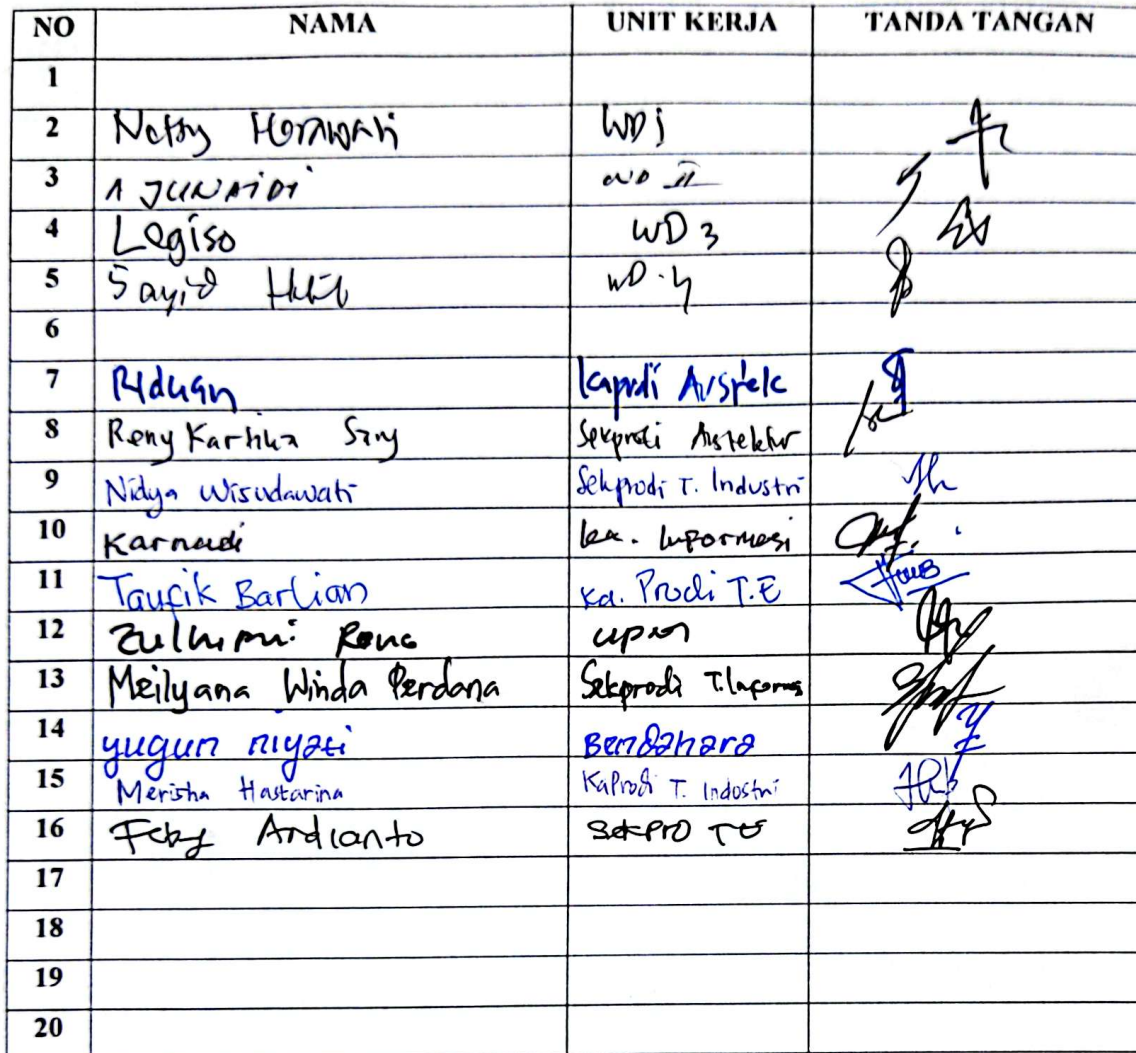 NO NAMA UNIT KERJA TANDA TANGAN
1
2 Netty Herawati WD 1
3 A JUNAIDI WD II
4 Legiso WD 3
5 Sayid WD. 4
6
7 Riduan Kaprodi Arsitek
8 Reny Kartika Sary Sekprodi Arsitektur
9 Nidya Wisudawati Sekprodi T. Industri
10 Karnadi ka. Informasi
11 Taufik Barlian Ka. Prodi T.E
12
13 Meilyana Winda Perdana Sekprodi T. Informs
14 yugun niyati Bendahara
15 Merisha Hastarina KaProdi T. Industri
16 Feby Ardianto SekPro TE
17
18
19
20